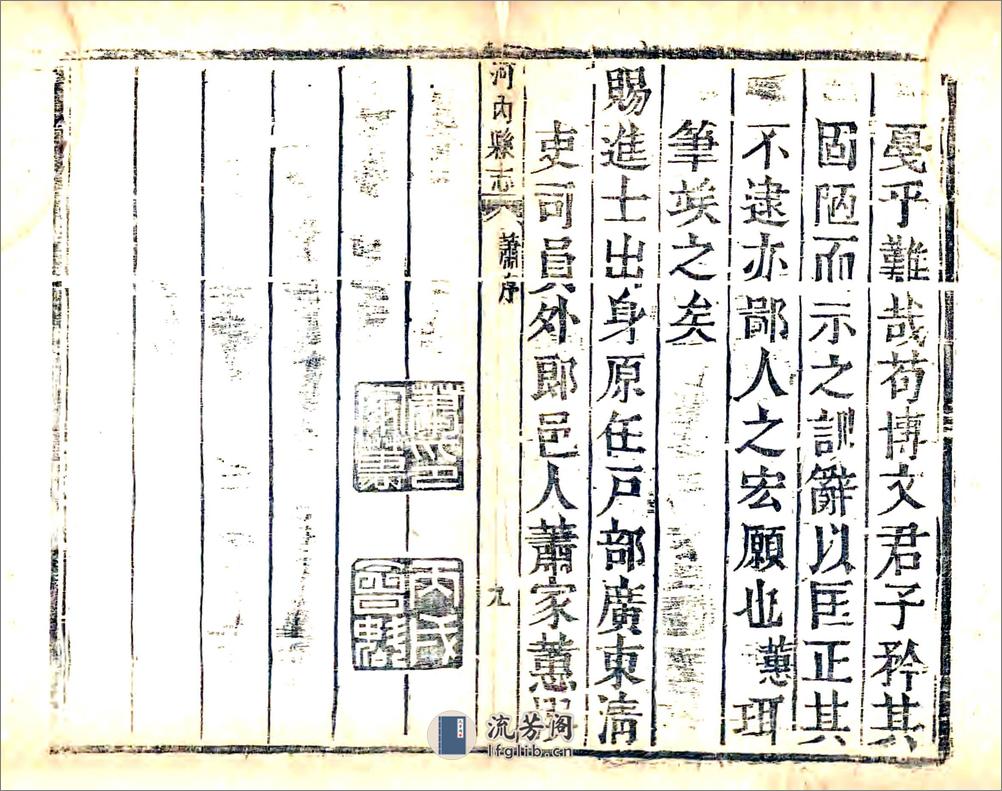 戞乎難哉苟博文君子矜其
固陋而示之訓辭以匡正其
不逮亦鄙人之宏願也蕙珥
筆竢之矣
賜進士出身原任戶部廣東清
吏司員外郎邑人蕭家蕙
河內縣志 蕭序 九
丙戌會魁
流芳阁
lfglib.cn